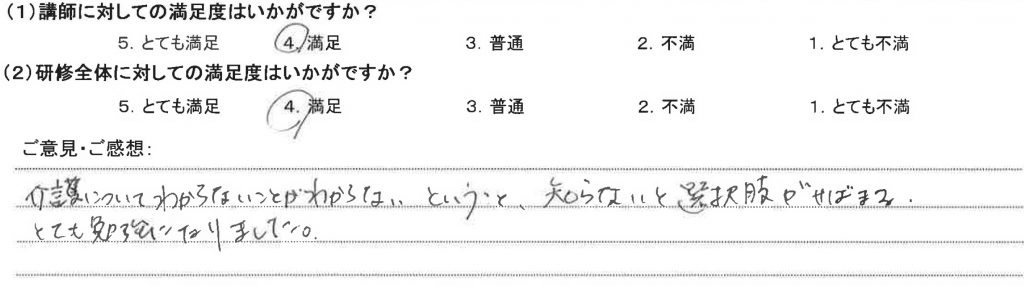 (1)講師に対しての満足度はいかがですか？
5. とても満足 4. 満足 3. 普通 2. 不満 1. とても不満
(2)研修全体に対しての満足度はいかがですか？
5. とても満足 4. 満足 3. 普通 2. 不満 1. とても不満
ご意見・ご感想：
介護についてわからないことがわからない ということ、知らないと選択肢がせばまる.
とても勉強になりました。